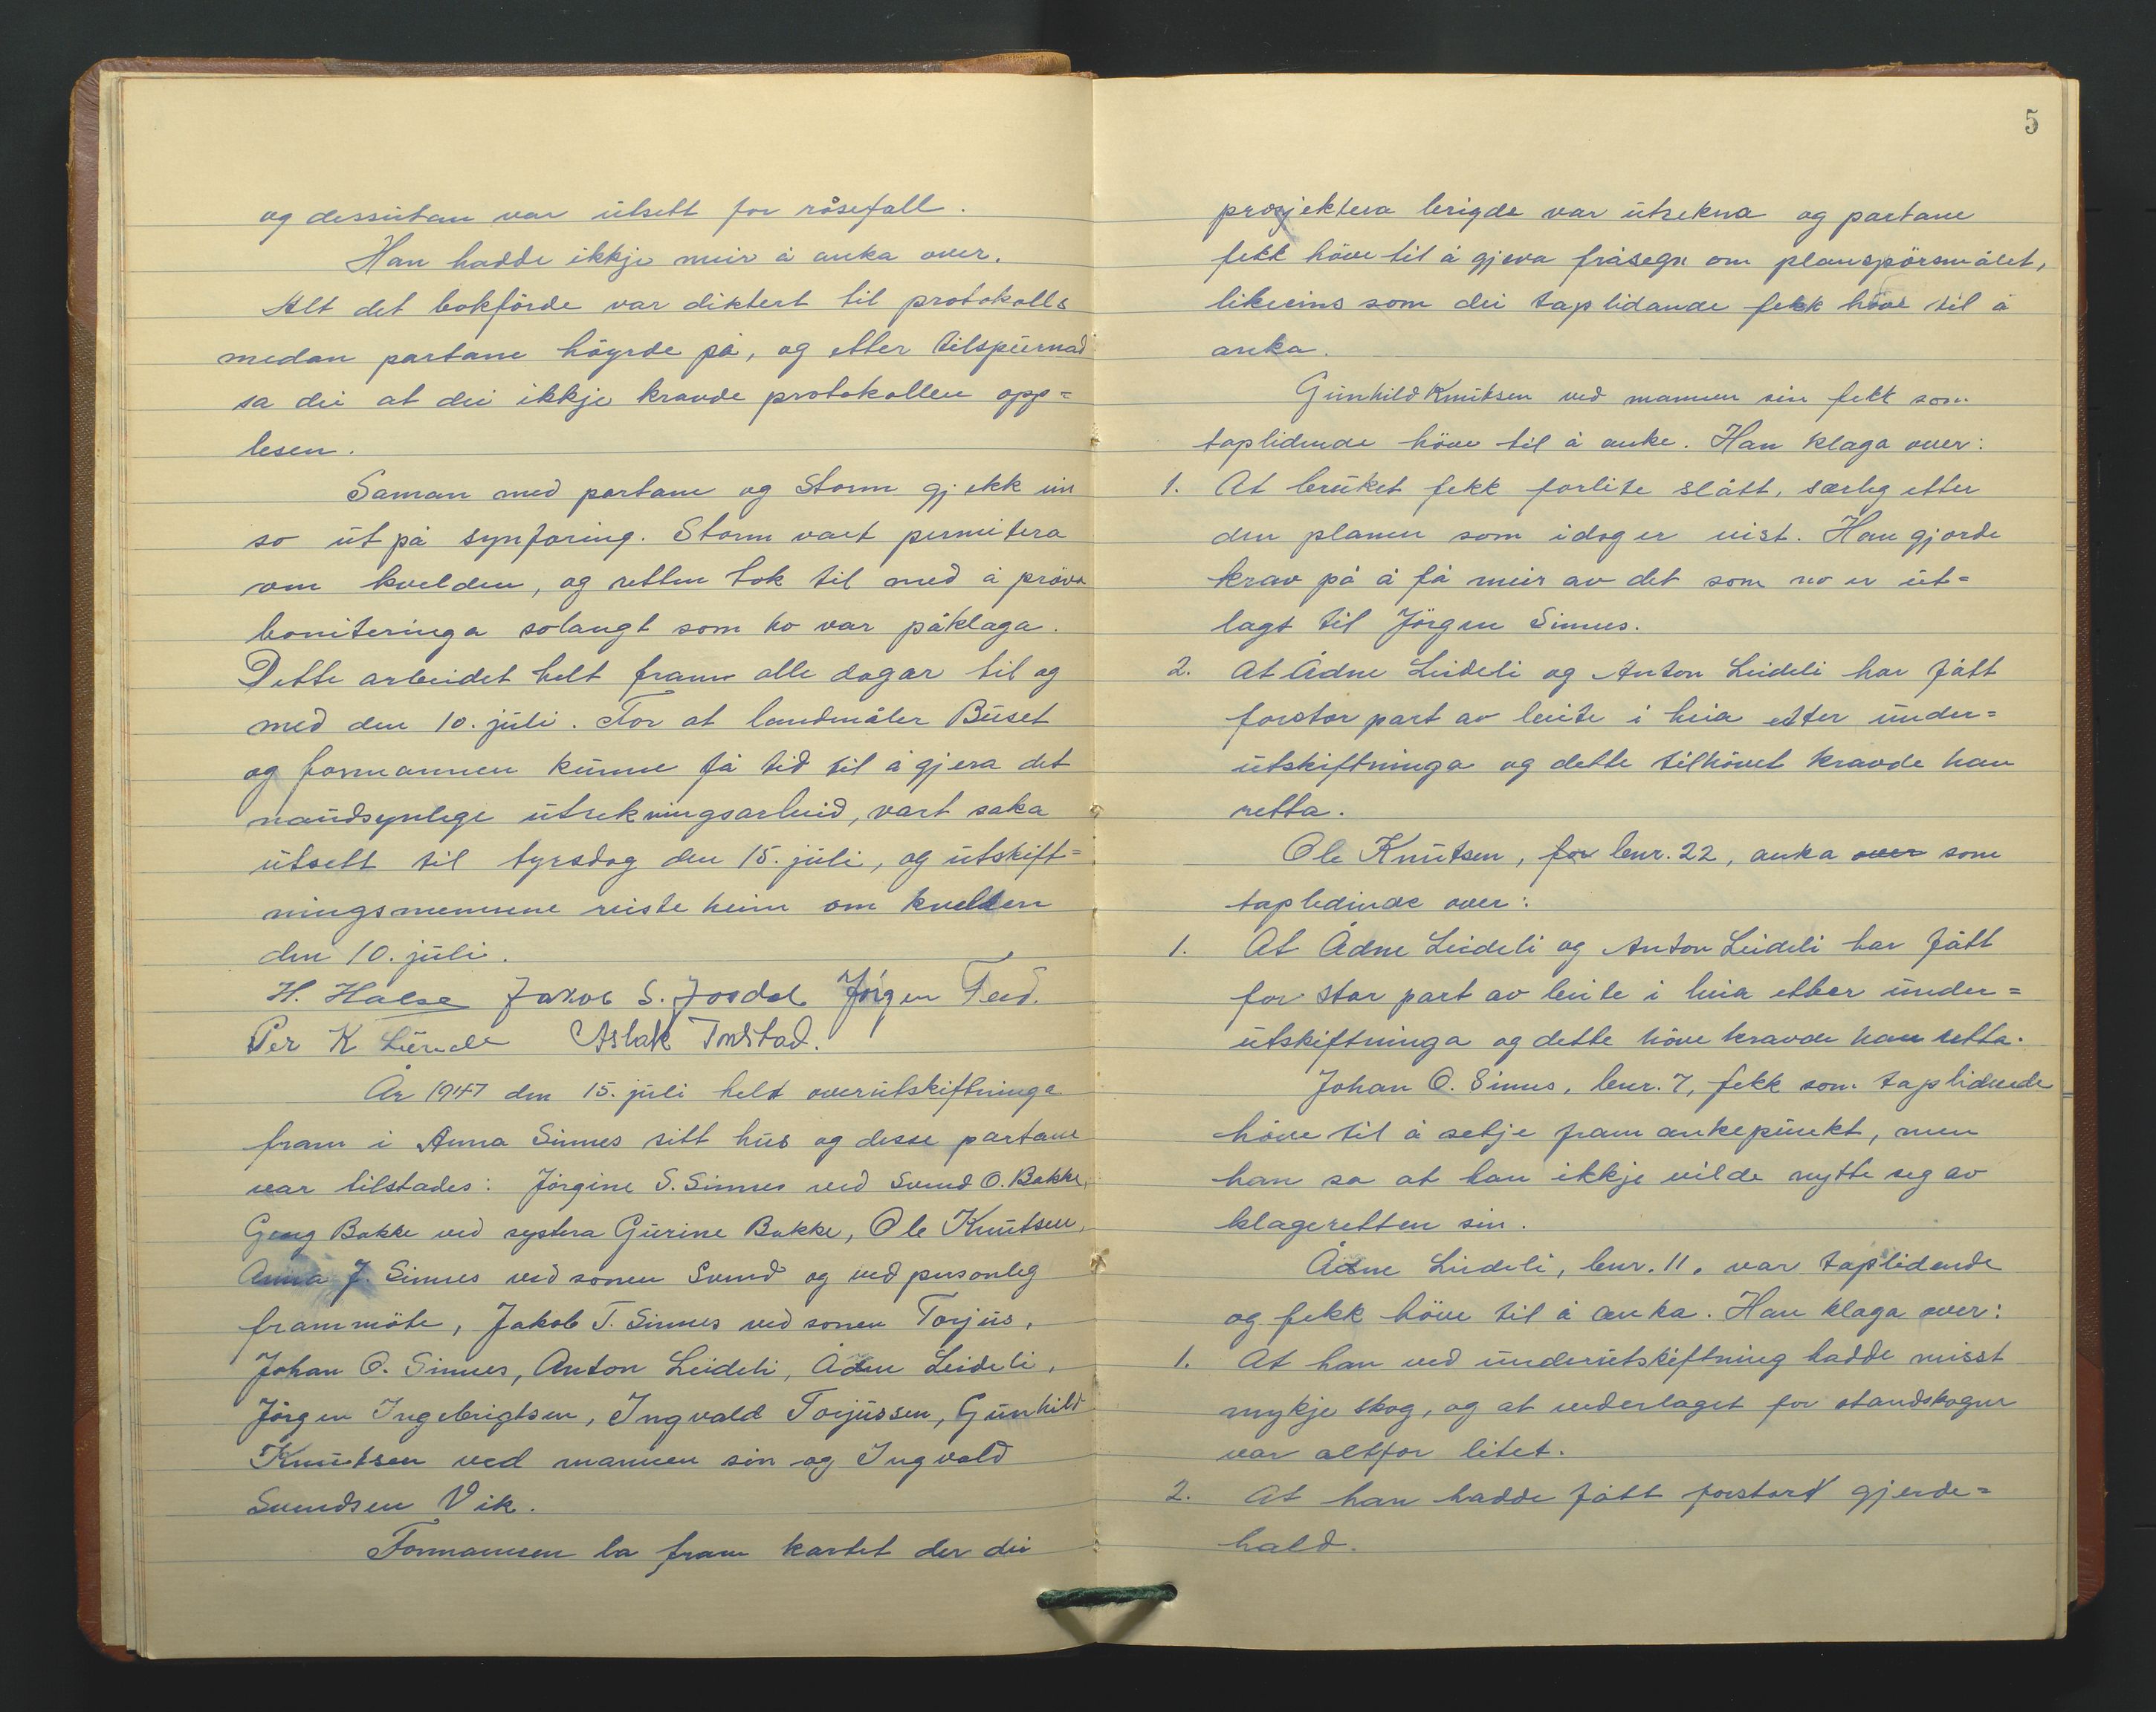 og dessutan var utsett for råsefall.
Han hadde ikkje meir å anka over.
Alt det bokförde var diktert til protokolls
medan partane höyrde på, og etter tilspurnad
sa dei at dei ikkje kravde protokollen opp=
lesen.
Saman med partane og Storm gjekk ein
so ut på synfaring. Storm vart permitera
om kvelden, og retten tok til med å pröva
boniteringa solangt som ho var påklaga.
Dette arbeidet helt fram alle dagar til og
med den 10. juli. For at landmåler Buset
og formannen kunne få tid til å gjera det
naudsynlege utrekningsarbeid, vart saka
utsett til tyrsdag den 15. juli, og utskift=
ningsmennene reiste heim om kvelden
den 10. juli.
H. Halse Jakob S. Josdal Jörgen Fed.
Per K Lunde Aslak Tonstad.
År 1947 den 15. juli helt overutskiftninga
fram i Anna Sinnes sitt hus og desse partane
var tilstades: Jörgine S. Sinnes ved Svend O. Bakke,
Georg Bakke ved systera Gurine Bakke, Ole Knutsen,
Anna J. Sinnes ved sonen Svend og ved personleg
frammöte, Jakob T. Sinnes ved sonen Torjus,
Johan O. Sinnes, Anton Leideli, Ådne Leideli,
Jörgen Ingebrigtsen, Ingvald Torjussen, Gunhild
Knutsen ved mannen sin og Ingvald
Svendsen Vik.
Formannen la fram kartet der dei
5
prosjektera berigde var utrekna og partane
fekk höve til å gjeva fråsegn om planspörsmålet,
likeeins som dei taplidande fekk höve til å
anka.
Gunhild Knutsen ved mannen sin fekk som
taplidende höve til å anke. Han klaga over:
1. At bruket fekk forlite slått, særleg etter
den planen som idag er vist. Han gjorde
krav på å få meir av det som no er ut=
lagt til Jörgen Sinnes.
2. At Ådne Leideli og Anton Leideli har fått
forstor part av beite i heia etter under=
utskiftninga og dette tilhövet kravde han
retta.
Ole Knutsen, for bnr. 22, anka over som
taplidende over:
1. At Ådne Leideli og Anton Leideli har fått
for stor part av beite i heia etter under=
utskiftninga og dette höve kravde han retta.
Johan O. Sinnes, bnr. 7, fekk som taplidende
höve til å setje fram ankepunkt, men
han sa at han ikkje vilde nytte seg av
klageretten sin.
Ådne Leideli, bnr. 11, var taplidende
og fekk höve til å anka. Han klaga over:
1. At han ved underutskiftning hadde misst
mykje skog, og at vederlaget for standskogen
var altfor litet.
2. At han hadde fått forstort gjerde=
hald.